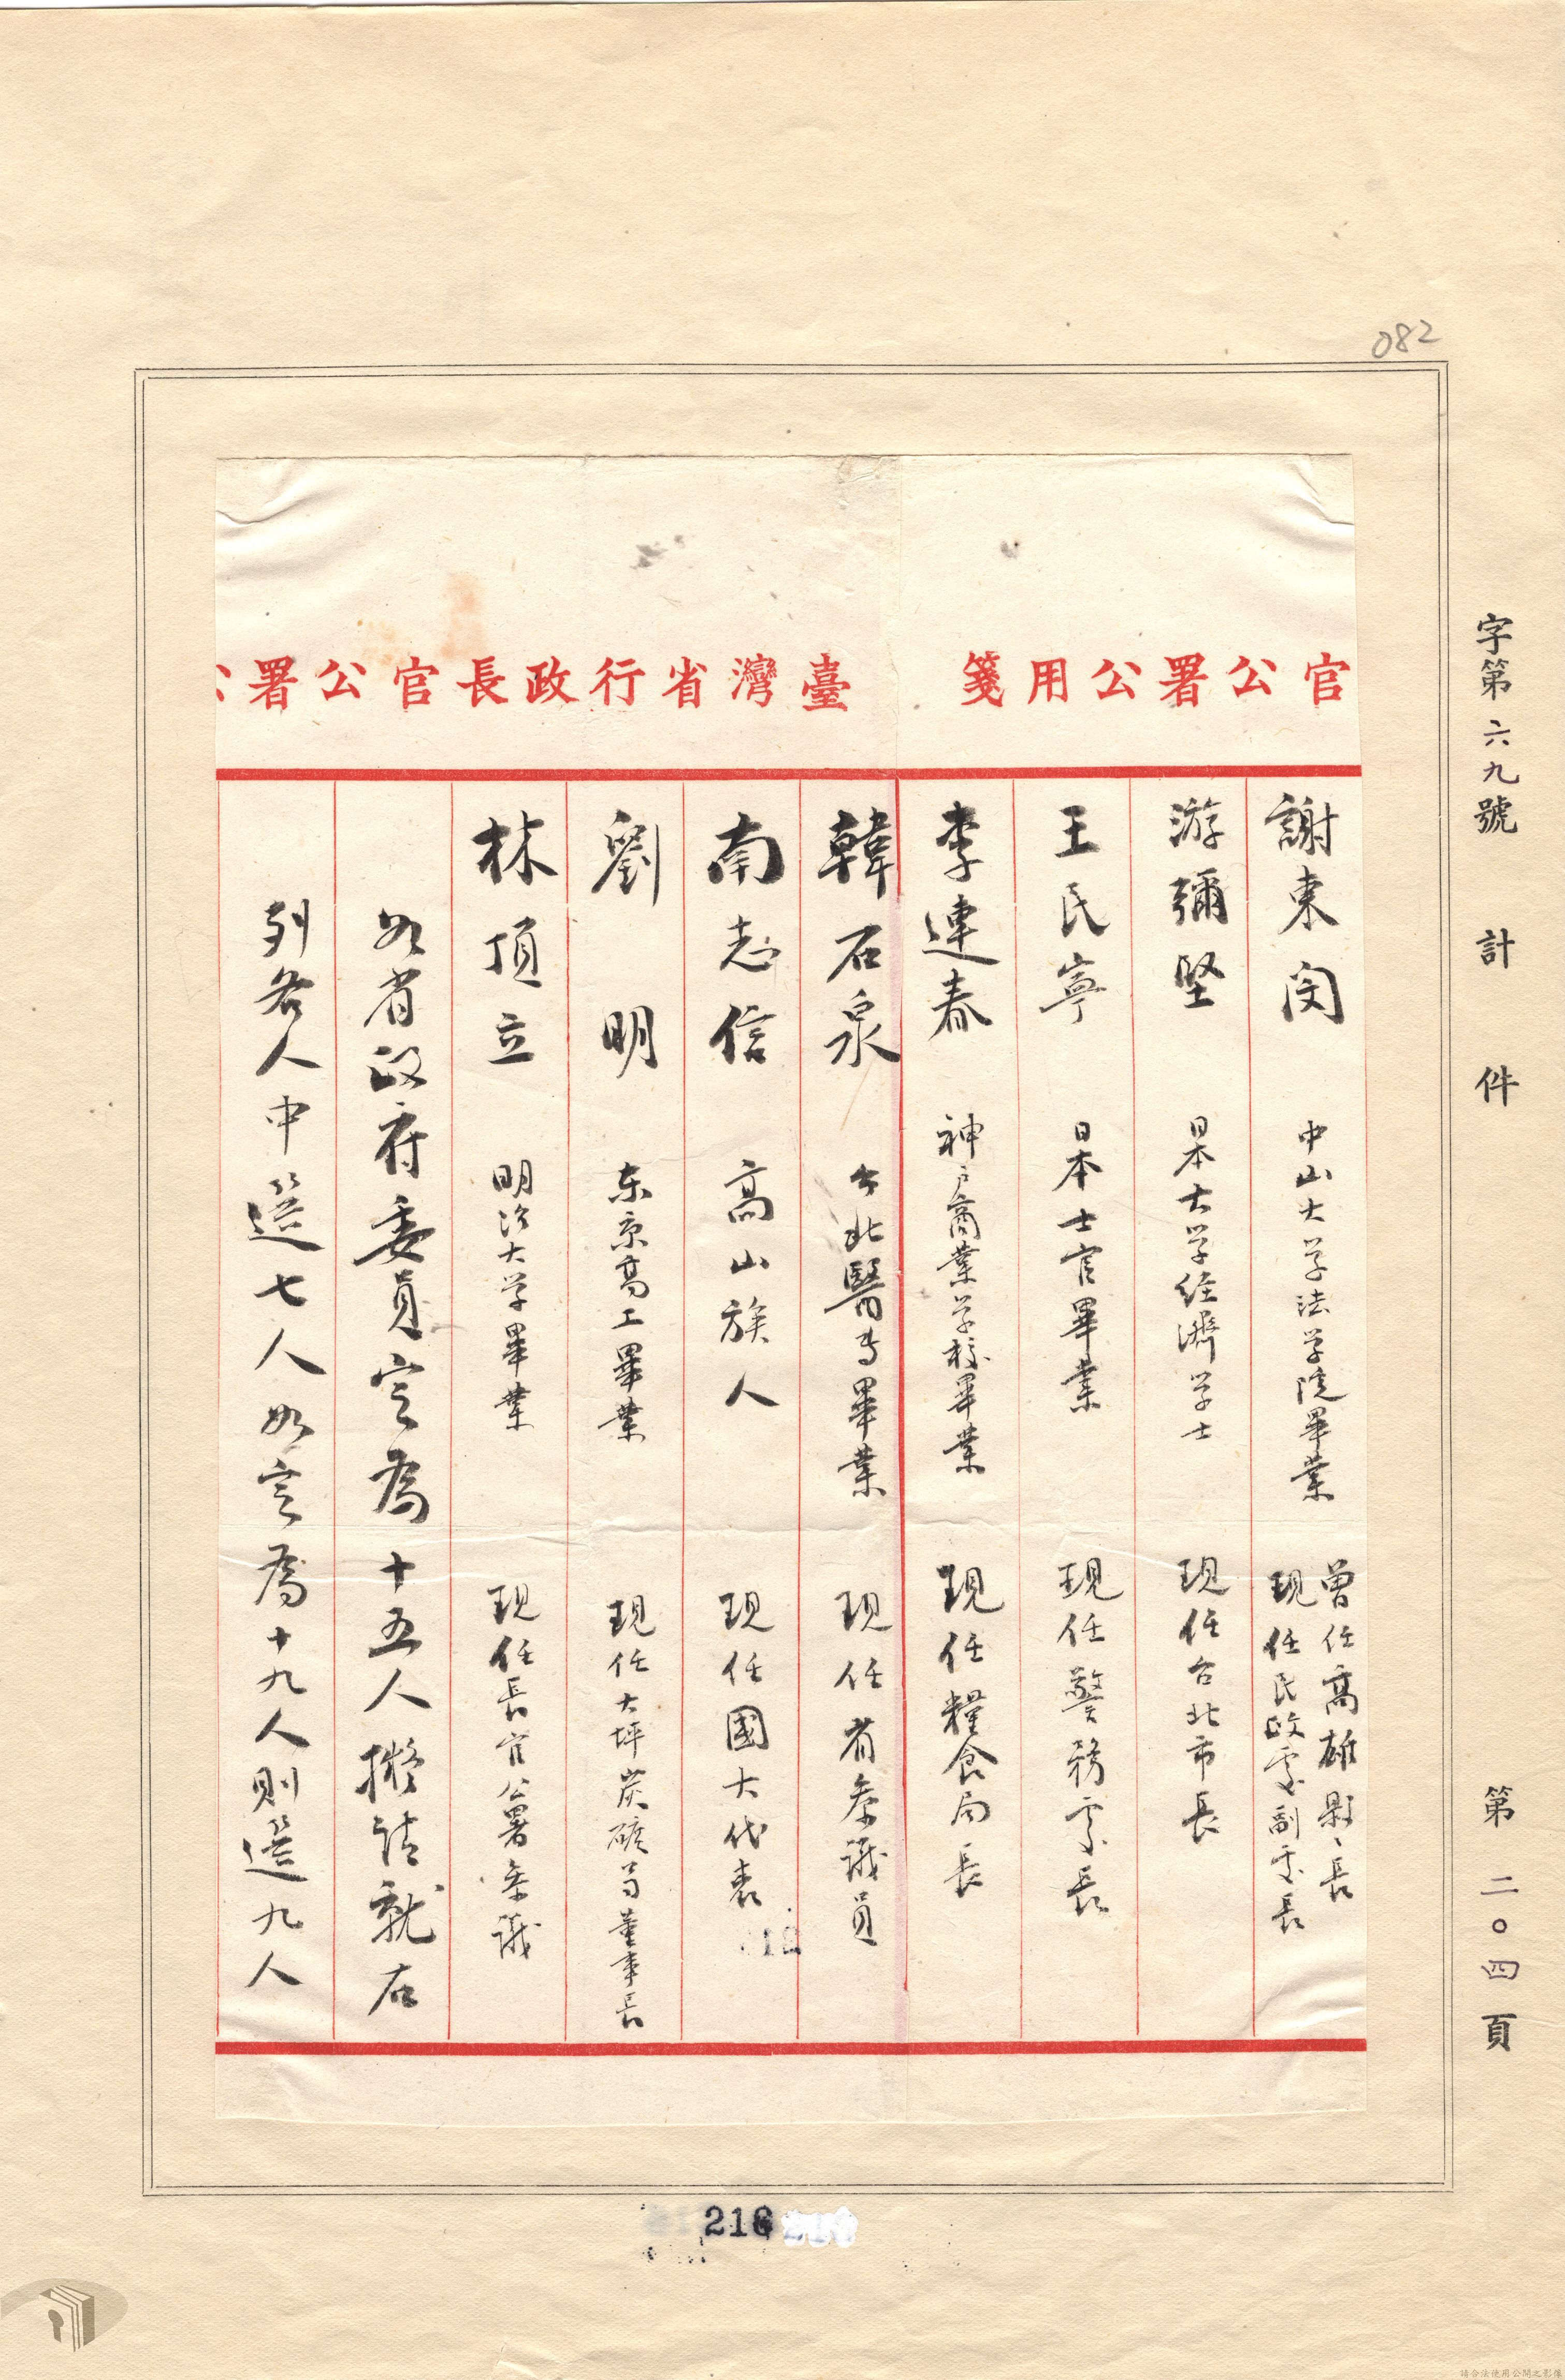 082
官公署公用箋
臺灣省行政長官公署公
謝東閔 中山大学法学院畢業 曾任高雄縣縣長
現任民政處副處長
游彌堅 日本大学經濟学士 現任台北市長
王民寧 日本士官畢業 現任警務處長
李連春 神戶商業学校畢業 現任糧食局長
韓石泉 台北醫專畢業 現任省參議員
南志信 高山族人 現任國大代表
劉明 东京高工畢業 現任大坪炭礦董事長
林頂立 明治大学畢業 現任長官公署參議
如省政府委員定為十五人擬請就右
列各人中選七人如定為十九人則選九人
字第六九號 計 件 第二〇四頁
216
請合法使用公開之影像